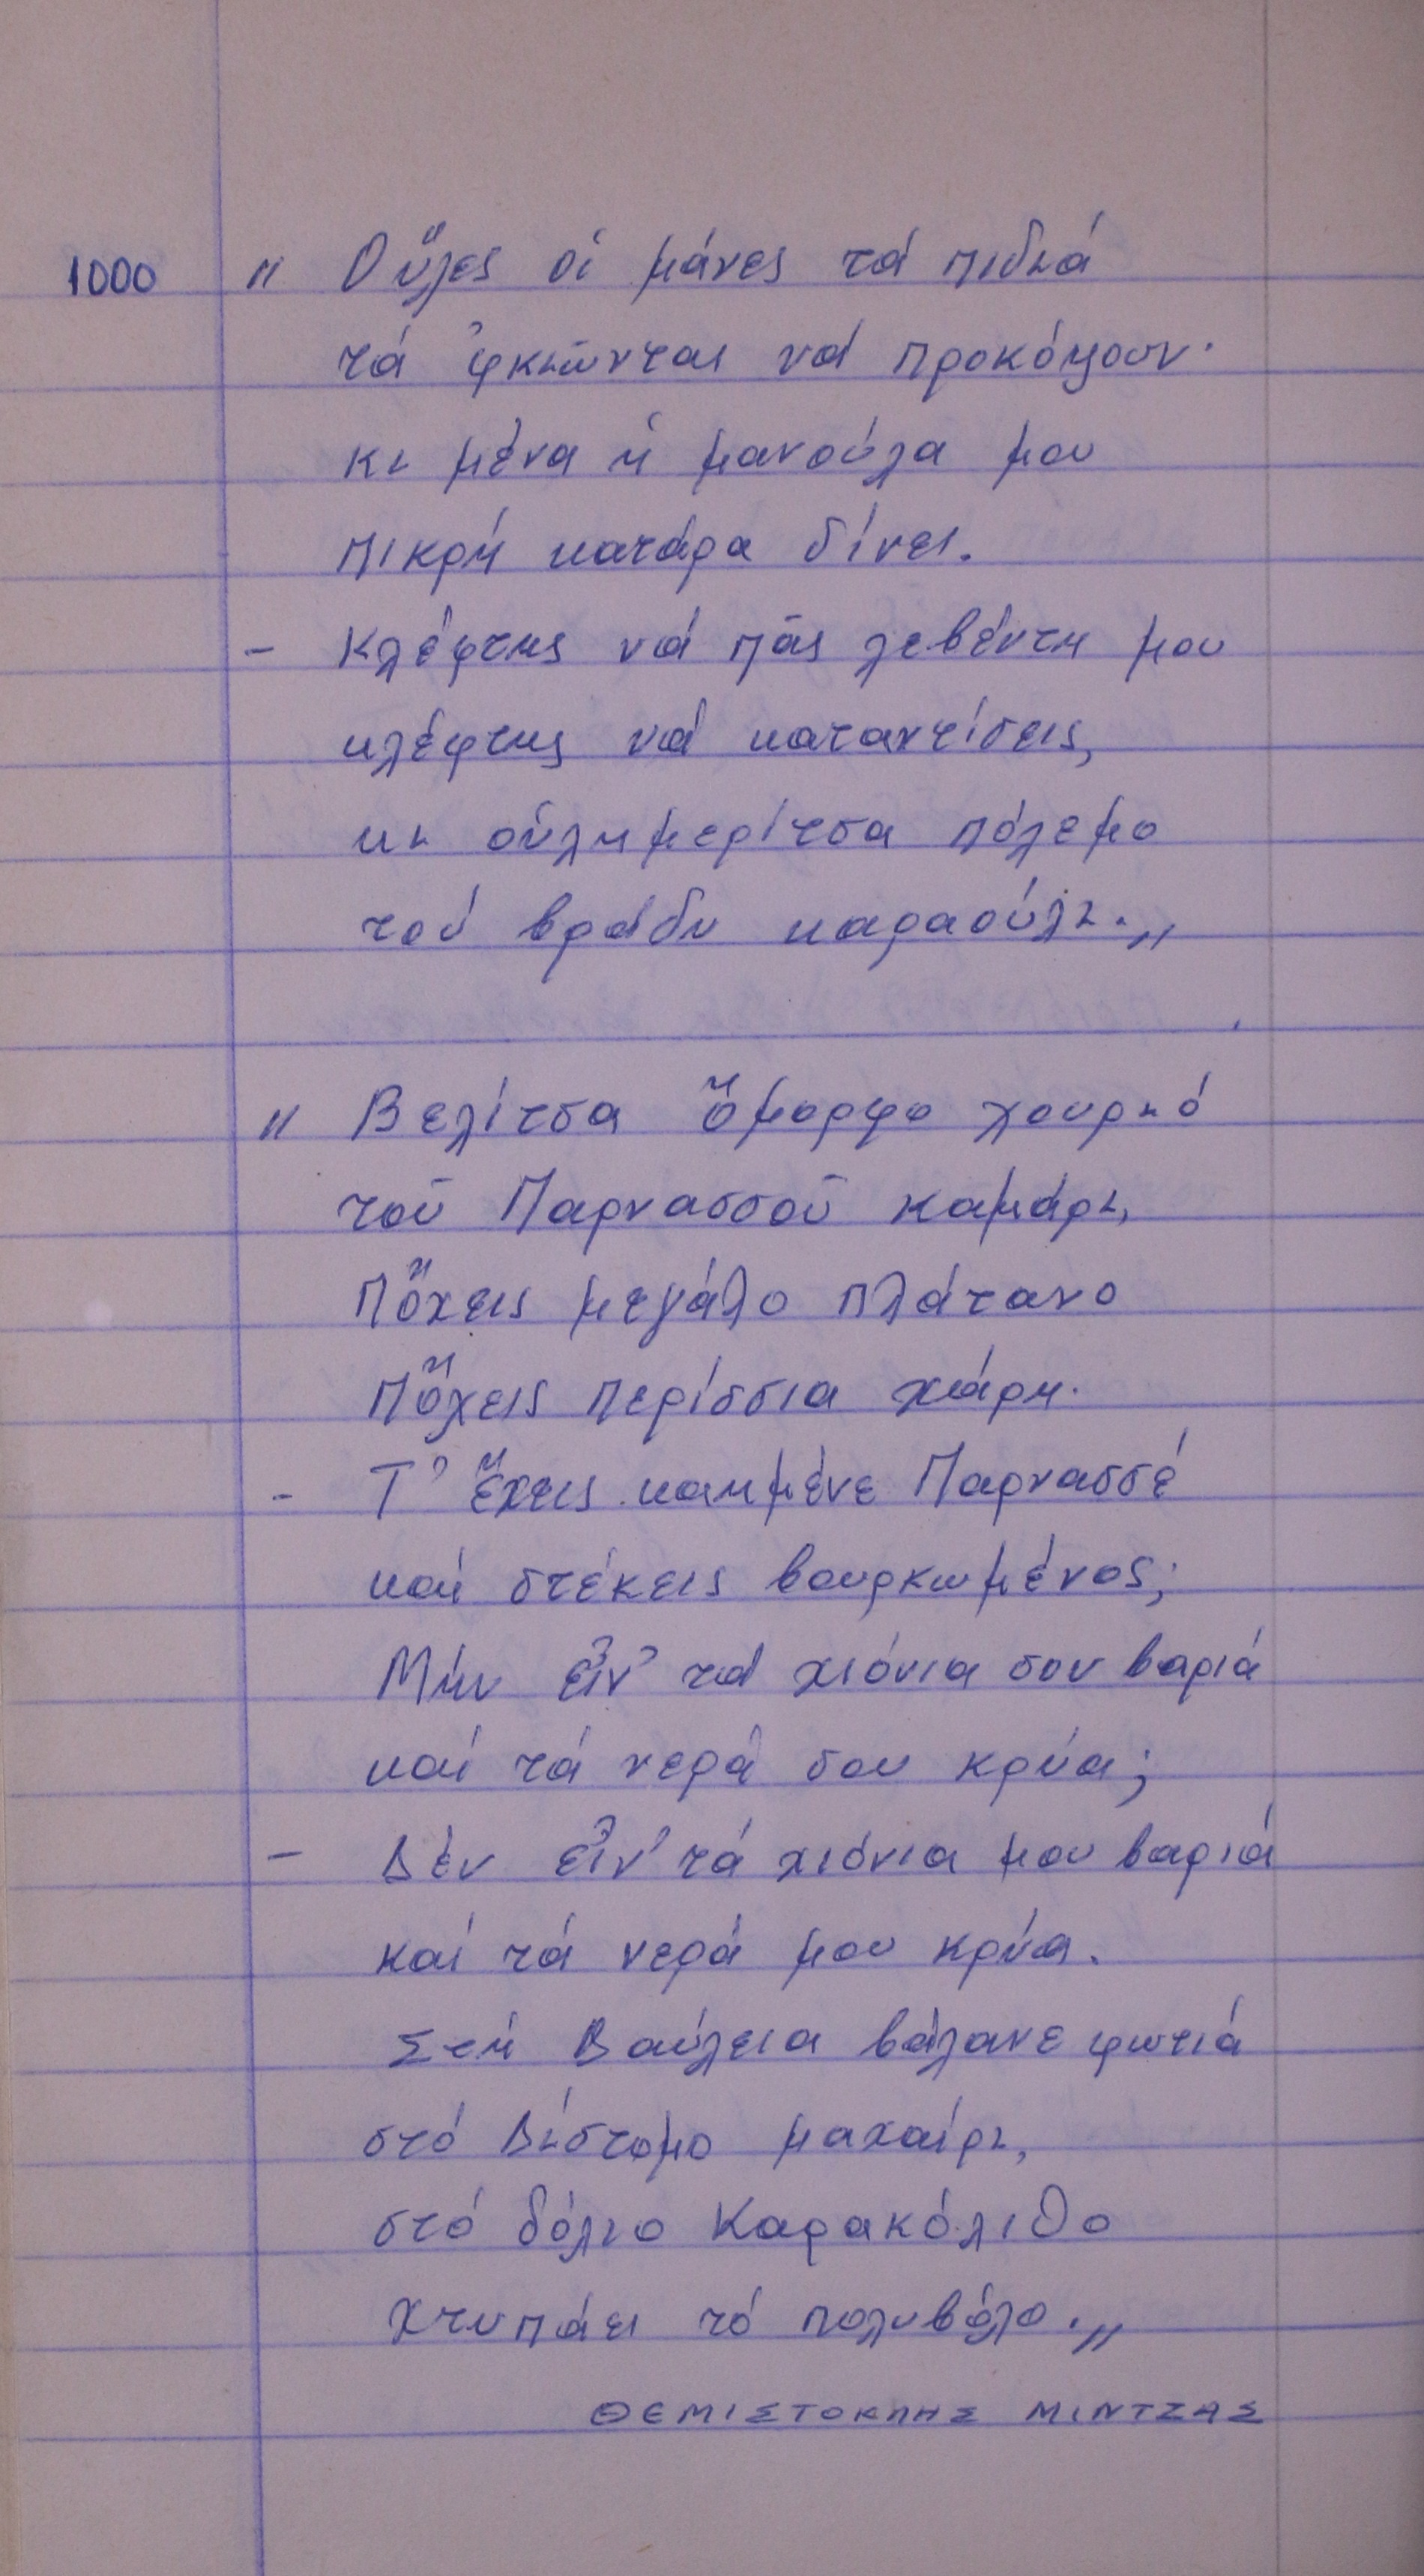 1000 " Οὔλες οἱ μάνες τά πιδιά
τά φκιῶνται νά προκόψουν·
κι μένα ἡ μανούλα μου
πικρή κατάρα δίνει.
- Κλέφτης νά πᾶς λεβέντη μου
κλέφτης νά καταντίσεις,
κι οὐλημερίτσα πόλεμο
τού βράδυ καραούλι."
" Βελίτσα ὄμορφο χουριό
τοῦ Παρνασσοῦ καμάρι,
Πὄχεις μεγάλο πλάτανο
Πὄχεις περίσσια χάρη.
- Τ' ἔχεις καημένε Παρνασσέ
καί στέκεις βουρκωμένος;
Μήν εἶν' τά χιόνια σου βαριά
καί τά νερά σου κρύα;
- Δέν εἶν' τά χιόνια μου βαριά
καί τά νερά μου κρύα.
Στή Βαύλεια βάλανε φωτιά
στό Δίστομο μαχαίρι,
στό δόλιο Καρακόλιθο
χτυπάει τό πολυβόλο."
ΘΕΜΙΣΤΟΚΛΗΣ ΜΙΝΤΖΑΣ